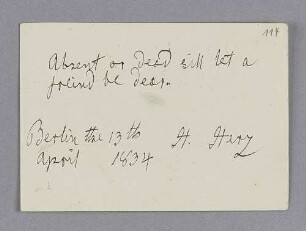 114
Absent or dead still let a
freind be dear.
Berlin the 13th H. Herz
April 1834